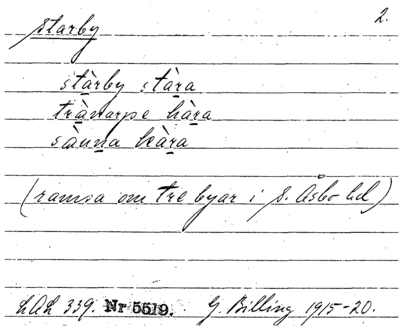 2.
Starby
stàrby stàra
trànarpe hàra
sàuna kàra
(ramsa om tre byar i S. Åsbo hd)
LAL 339. Nr 5519. G. Billing 1915-20.